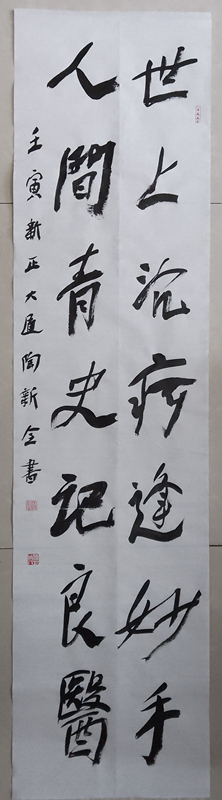 世上沉疴逢妙手
人間青史記良醫
壬寅新正大匠陶新全書